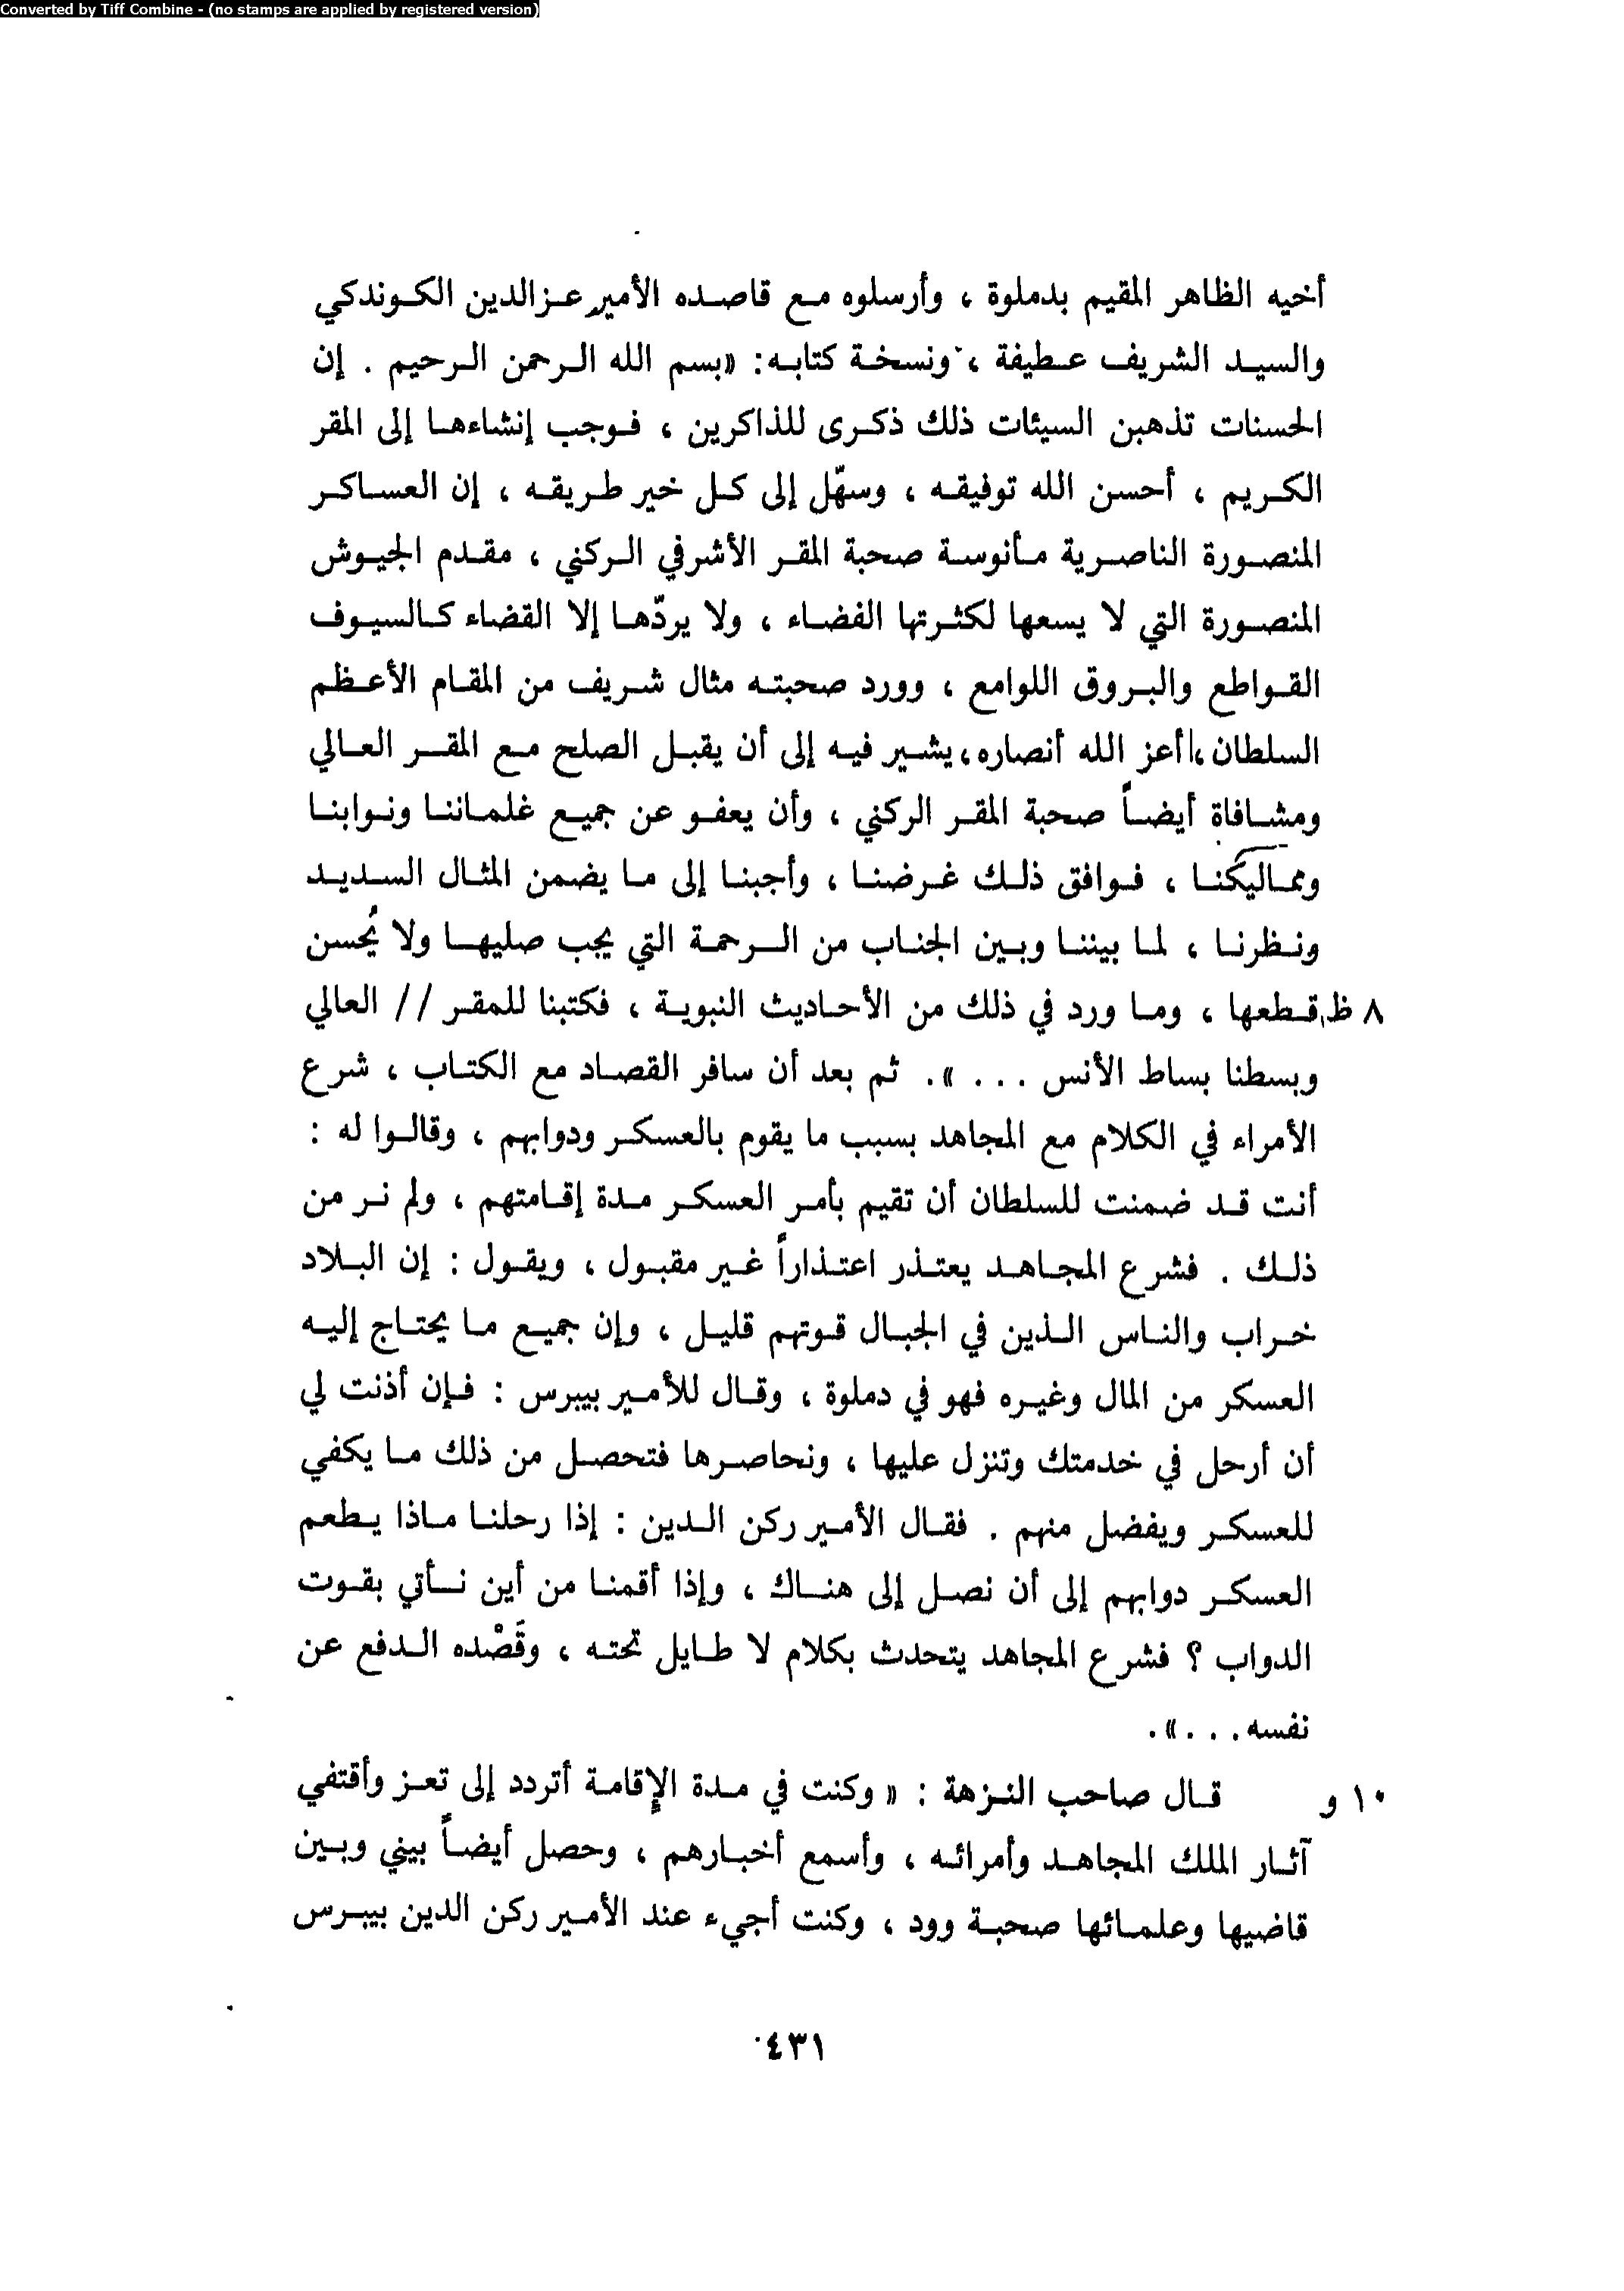 Converted by Tiff Combine - (no stamps are applied by registered version)
أخيه الظاهر المقيم بدملوة ، وأرسلوه مع قاصده الأمير عز الدين الكوندكي
والسيد الشريف عطيفة ، ونسخة كتابه : «بسم الله الرحمن الرحيم . إن
الحسنات تذهبن السيئات ذلك ذكرى للذاكرين ، فوجب إنشاءها إلى المقر
الكريم ، أحسن الله توفيقه ، وسهّل إلى كل خير طريقه ، إن العساكر
المنصورة الناصرية مأنوسة صحبة المقر الأشرفي الركني ، مقدم الجيوش
المنصورة التي لا يسعها لكثرتها الفضاء ، ولا يردّها إلا القضاء كالسيوف
القواطع والبروق اللوامع ، وورد صحبته مثال شريف من المقام الأعظم
السلطان ، أعز الله أنصاره ، يشير فيه إلى أن يقبل الصلح مع المقر العالي
ومشافاة أيضاً صحبة المقر الركني ، وأن يعفو عن جميع غلماننا ونوابنا
ومماليكنا ، فوافق ذلك غرضنا ، وأجبنا إلى ما يضمن المثال السديد
ونظرنا ، لما بيننا وبين الجناب من الرحمة التي يجب صليها ولا يُحسن
٨ ظ قطعها ، وما ورد في ذلك من الأحاديث النبوية ، فكتبنا للمقر // العالي
وبسطنا بساط الأنس . . . » . ثم بعد أن سافر القصاد مع الكتاب ، شرع
الأمراء في الكلام مع المجاهد بسبب ما يقوم بالعسكر ودوابهم ، وقالوا له :
أنت قد ضمنت للسلطان أن تقيم بأمر العسكر مدة إقامتهم ، ولم نر من
ذلك . فشرع المجاهد يعتذر اعتذاراً غير مقبول ، ويقول : إن البلاد
خراب والناس الذين في الجبال قوتهم قليل ، وإن جميع ما يحتاج إليه
العسكر من المال وغيره فهو في دملوة ، وقال للأمير بيبرس : فإن أذنت لي
أن أرحل في خدمتك وتنزل عليها ، ونحاصرها فتحصل من ذلك ما يكفي
للعسكر ويفضل منهم . فقال الأمير ركن الدين : إذا رحلنا ماذا يطعم
العسكر دوابهم إلى أن نصل إلى هناك ، وإذا أقمنا من أين نأتي بقوت
الدواب ؟ فشرع المجاهد يتحدث بكلام لا طايل تحته ، وقَصْده الدفع عن
نفسه . . . » .
١٠ و قال صاحب النزهة : « وكنت في مدة الإقامة أتردد إلى تعز وأقتفي
آثار الملك المجاهد وأمرائه ، وأسمع أخبارهم ، وحصل أيضاً بيني وبين
قاضيها وعلمائها صحبة وود ، وكنت أجيء عند الأمير ركن الدين بيبرس
٤٣١